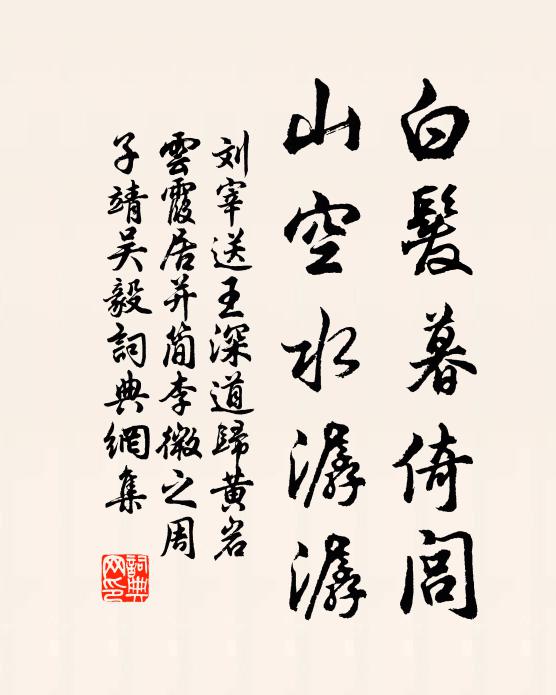 白髮暮倚閭
山空水潺潺
刘宰送王深道歸黄岩
雲霞居并简李微之周
子靖吴毅詞典網集
詞典网印